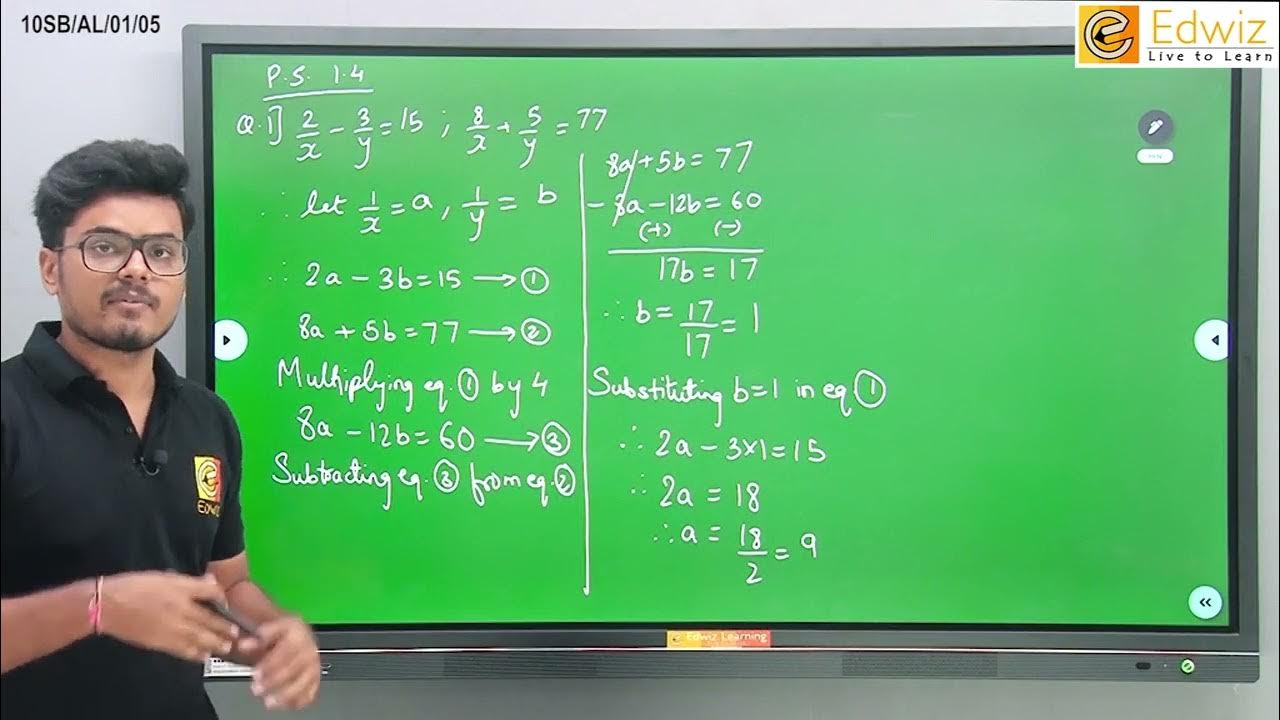 10SB/AL/01/05
Edwiz
Live to Learn
P.S. 1.4
Q.1] 2/x - 3/y = 15 ; 8/x + 5/y = 77
∴ let 1/x = a, 1/y = b
∴ 2a - 3b = 15 → ①
8a + 5b = 77 → ②
Multiplying eq. ① by 4
8a - 12b = 60 → ③
Subtracting eq. ③ from eq. ②
8a + 5b = 77
- 8a - 12b = 60
(+) (-)
17b = 17
∴ b = 17/17 = 1
Substituting b=1 in eq ①
∴ 2a - 3×1 = 15
∴ 2a = 18
∴ a = 18/2 = 9
Edwiz Learning